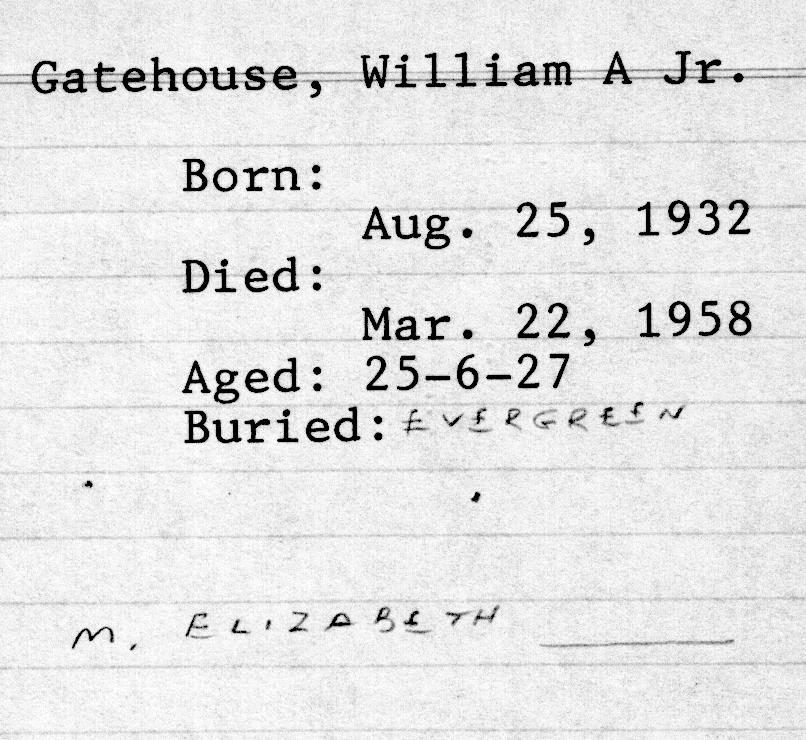 Gatehouse, William A Jr.
Born:
Aug. 25, 1932
Died:
Mar. 22, 1958
Aged: 25-6-27
Buried: EVERGREEN
M. ELIZABETH